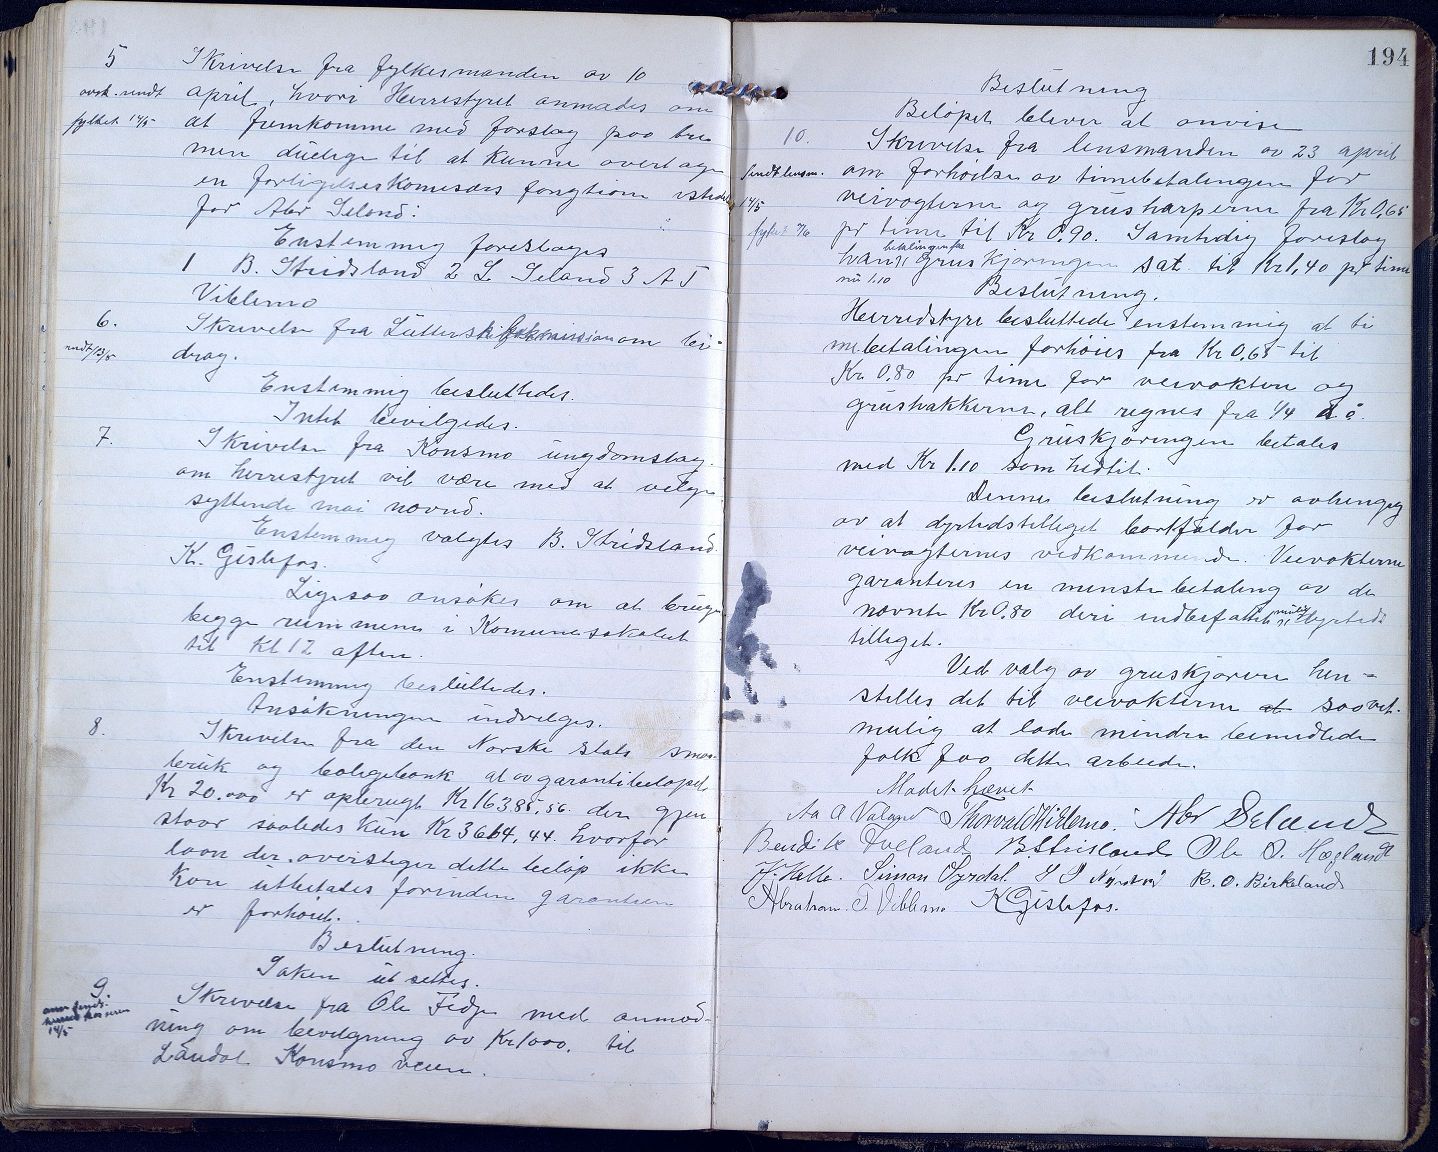 5 Skrivelse fra fylkesmanden av 10
avsk. sendt april, hvori Herrestyret anmodes om
fylket 14/5 at fremkomme med forslag paa tre
men duelige til at kunne overtage
en forligelseskomisærs fongtion istedet
for Abr Seland:
Enstemmig foreslages
1 B. Stridsland 2 S. Seland 3 A T
Viblemo
6. Skrivelse fra om bi-
sendt 13/5 drag.
Enstemmig besluttedes.
Intet bevilgedes.
7. Skrivelse fra Konsmo ungdomslag.
om herrestyret vil være med at velge
syttende mai nevnd.
Enstemmig valgtes B. Stridsland
K. Gislefos.
Ligesaa ansøkes om at bruge
begge rummene i Komunelokalet
til Kl 12 aften.
Enstemmig besluttedes.
Ansøkningen indvilges.
8. Skrivelse fra den Norske Stats smaa-
bruk og boligbank at av garantibeløpet
Kr 20.000 er opbrugt Kr 16385,56. den gjen
staar saaledes kun Kr 3614,44. hvorfor
laan der oversteger dette beløp ikke
kan utbetales forinden garantien
er forhøiet.
Beslutning.
Saken utsettes.
9. Skrivelse fra Ole Fidje med anmod-
14/5 ning om bevilgning av Kr 1000. til
Laudal Konsmo veien.
194
Beslutning
Beløpet blever at anvise
10. Skrivelse fra lensmanden av 23 april
Sendt lensm. om forhøielse av timebetalingen for
14/5 veivogterne og grusharperne fra Kr 0,65
fylket 7/6 pr time til Kr 0,90. Samtidig foreslog
betalingen for
han gruskjøringen sat til Kr 1,40 pr time
nu 1.10
Beslutning.
Herredstyre besluttede enstemmig at ti
mebetalingen forhøies fra Kr 0,65 til
Kr 0,80 pr time for veivokterne og
grushakkerne, alt regnes fra 1/4 d å.
Gruskjøringen betales
med Kr 1.10 som hidtil.
Denne beslutning er avhengig
av at dyrtidstilleget bortfalder for
veivogternes vedkommende. Veivokterne
garanteres en minstebetaling av de
nevnte Kr 0.80 deri indbefattet mulig dyrtids
tilleget.
Ved valg av gruskjørere hen-
stilles det til veivokterne at saavit
mulig at lade mindre bemidlede
folk faa dette arbeide.
Mødet hævet
Aa A Valand Thorvald Viblemo. Abr Seland
Bendik Tveland B. Stridsland Ole O. Hægland
J. Helle. Simon Øyrdal. R. O. Birkeland
Abraham T. Viblemo K Gislefos.